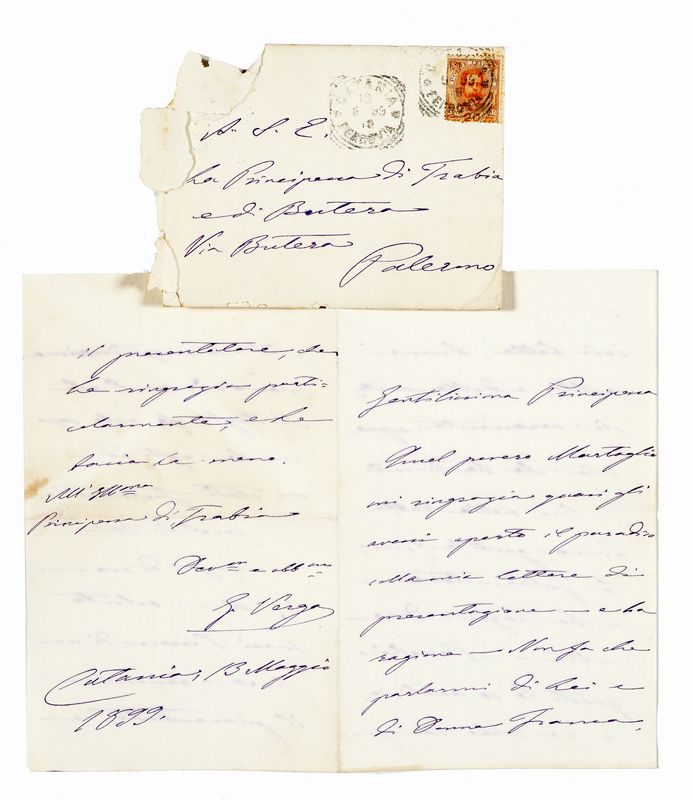 CATANIA
13
5 99
FERROVIA
A. S. E.
La Principessa di Trabia
e di Butera
Via Butera
Palermo
Gentilissima Principessa
Quel povero Martoglio
mi ringrazia quasi gli
avessi aperto il paradiso
colla mia lettera di
presentazione — e ha
ragione — Non fa che
parlarmi di Lei e
di Donna Franca,
il presentatore, che
La ringrazia parti=
colarmente, e Le
bacia la mano.
All' Ill.ma
Principessa di Trabia
Dev.mo e obb.mo
G. Verga
Catania, 13 Maggio
1899.